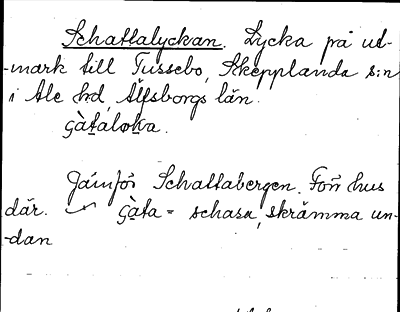 Schattalyckan. Lycka på ut-
-mark till Tussebo, Skepplanda s:n
i Ale hd, Älfsborgs län.
Jämför Schattabergen. Forn hus
där. = schasa, skrämma un-
-dan